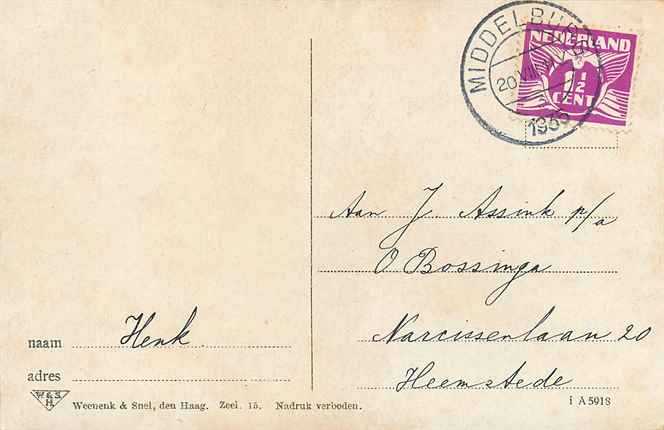 MIDDELBURG
20 VII
1935
NEDERLAND
1 1/2
CENT
Aan J. Assink p/a
O Bossinga
Narcissenlaan 20
Heemstede
naam Henk.
adres
W & S
H.
Weenenk & Snel, den Haag. Zeel. 15. Nadruk verboden.
i A 5918